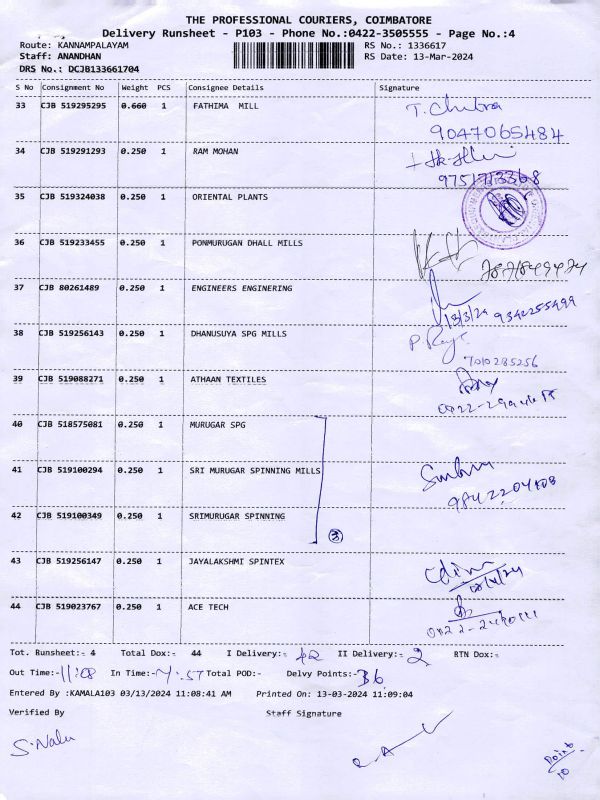 THE PROFESSIONAL COURIERS, COIMBATORE
Delivery Runsheet - P103 - Phone No.:0422-3505555 - Page No.:4
Route: KANNAMPALAYAM RS No.: 1336617
Staff: ANANDHAN RS Date: 13-Mar-2024
DRS No.: DCJB133661704
S No Consignment No Weight PCS Consignee Details Signature
33 CJB 519295295 0.660 1 FATHIMA MILL T. Chitra
9047065484
34 CJB 519291293 0.250 1 RAM MOHAN
9751713368
35 CJB 519324038 0.250 1 ORIENTAL PLANTS
36 CJB 519233455 0.250 1 PONMURUGAN DHALL MILLS
37 CJB 80261489 0.250 1 ENGINEERS ENGINERING
13/3/24 9342255499
38 CJB 519256143 0.250 1 DHANUSUYA SPG MILLS
7010285256
39 CJB 519088271 0.250 1 ATHAAN TEXTILES
40 CJB 518575081 0.250 1 MURUGAR SPG
41 CJB 519100294 0.250 1 SRI MURUGAR SPINNING MILLS
42 CJB 519100349 0.250 1 SRIMURUGAR SPINNING
3
43 CJB 519256147 0.250 1 JAYALAKSHMI SPINTEX
44 CJB 519023767 0.250 1 ACE TECH
Tot. Runsheet:- 4 Total Dox:- 44 I Delivery:- 42 II Delivery:- 2 RTN Dox:-
Out Time:- 11:08 In Time:- 7:57 Total POD:- Delvy Points:- 36
Entered By :KAMALA103 03/13/2024 11:08:41 AM Printed On: 13-03-2024 11:09:04
Verified By Staff Signature
S. Nalu
Point
10